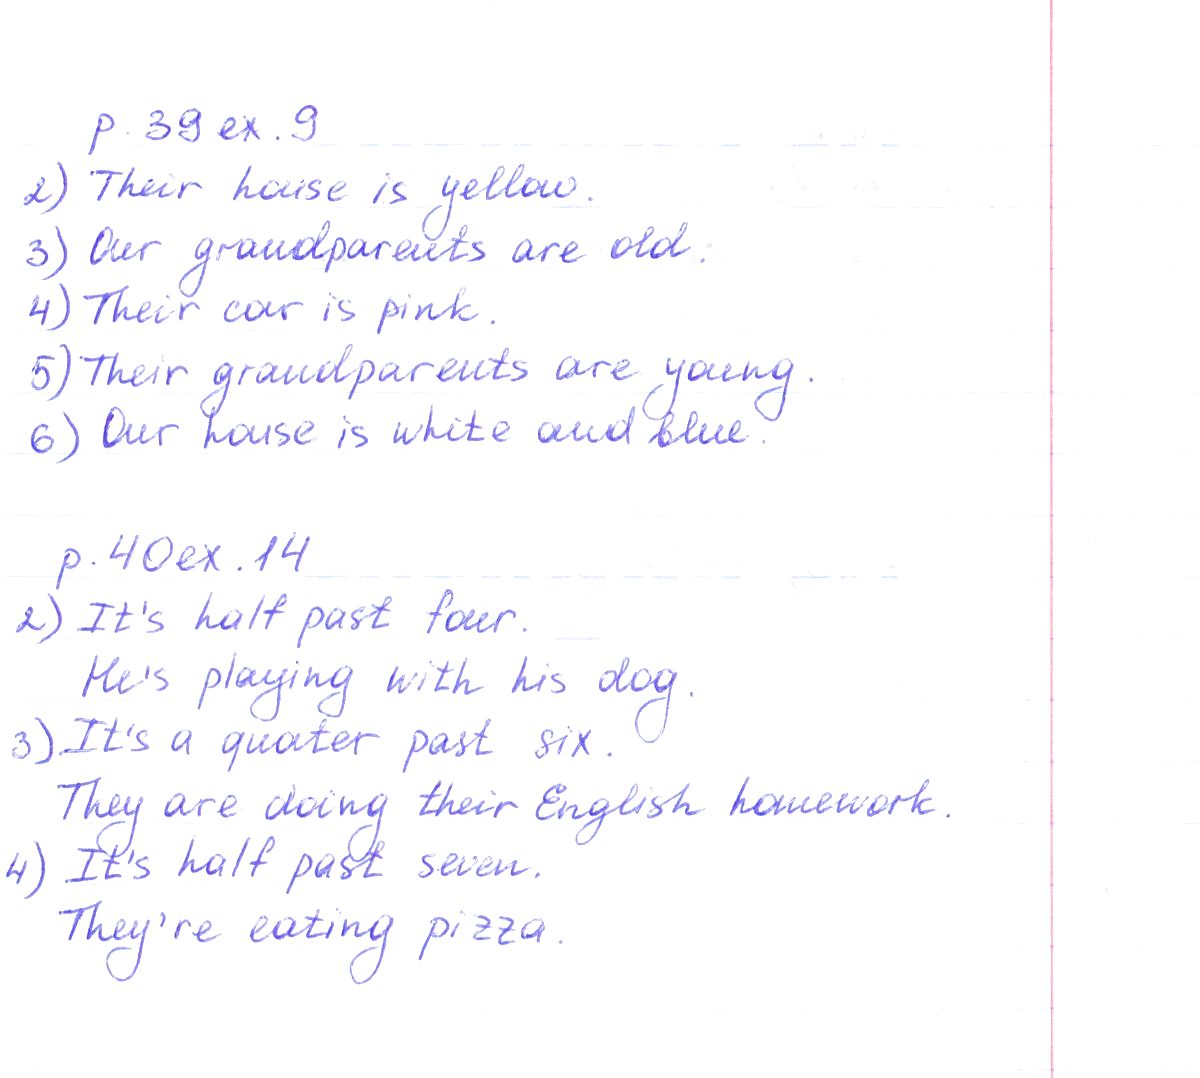 p. 39 ex. 9
2) Their house is yellow.
3) Our grandparents are old.
4) Their car is pink.
5) Their grandparents are young.
6) Our house is white and blue.
p. 40 ex. 14
2) It's half past four.
He's playing with his dog.
3) It's a quater past six.
They are doing their English homework.
4) It's half past seven.
They're eating pizza.